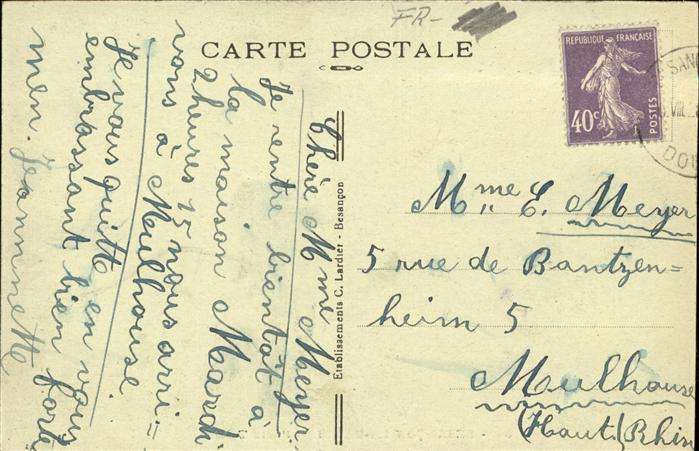 FR-
CARTE POSTALE
REPUBLIQUE FRANÇAISE
40c
POSTES
SANÇ
VIII
DOU
Chère Mme Meyer
Je rentre bientôt à
la maison Mardi
2 heures 15 nous arri=
vons à Mulhouse
Je vous quitte en vous
embrassant bien fort
men. Jeannette
Etablissements C. Lardier - Besançon
Mme E. Meyer
5 rue de Bantzen=
heim 5
Mulhouse
(Haut Rhin